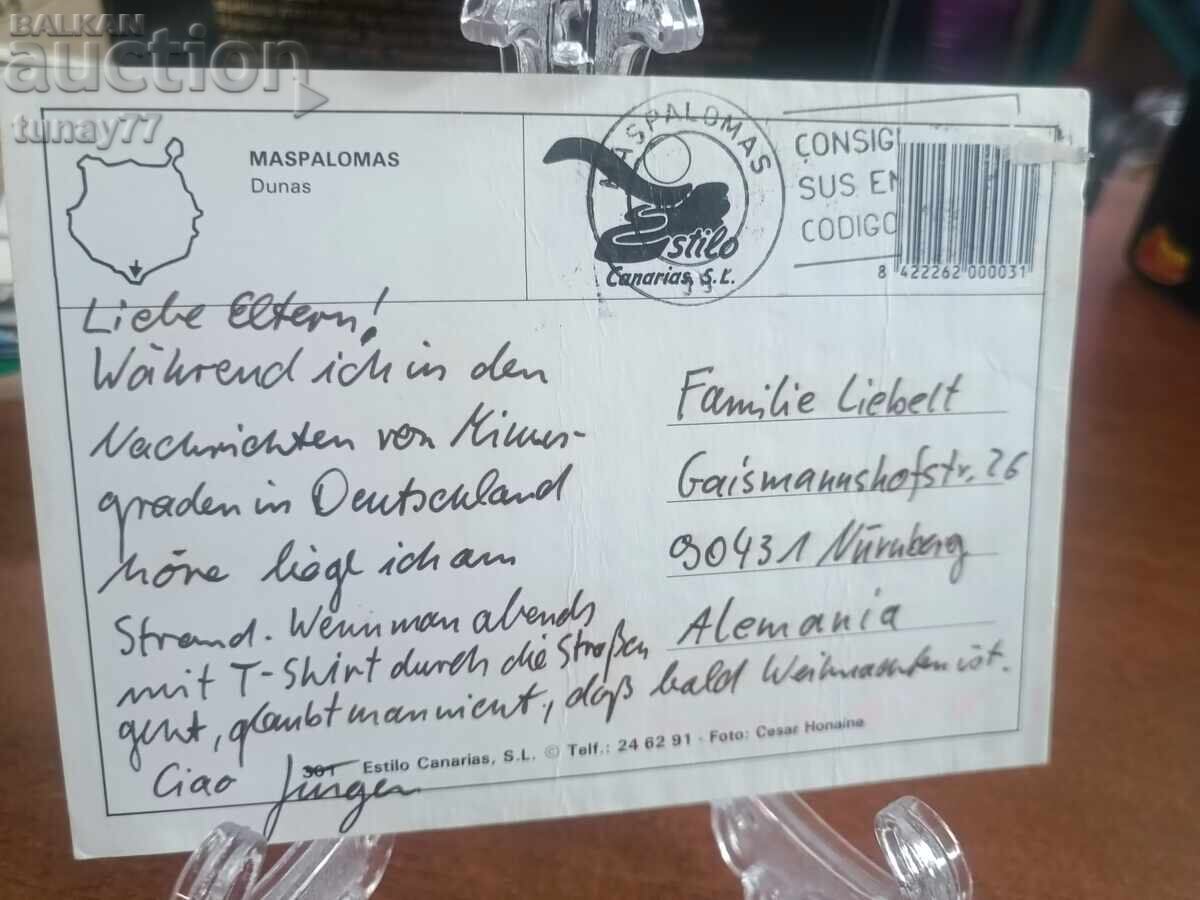 BALKAN
auction
tunay77
MASPALOMAS
Dunas
MASPALOMAS
Estilo
Canarias, S.L.
CONSIG
SUS EN
CODIGO
8 422262 000031
Liebe Eltern!
Während ich in den
Nachrichten von Minus-
graden in Deutschland
höre liege ich am
Strand. Wenn man abends
mit T-Shirt durch die Straßen
geht, glaubt man nicht, daß bald Weihnachten ist.
Ciao Jürgen
Familie Liebelt
Gaismannshofstr. 26
90431 Nürnberg
Alemania
301 Estilo Canarias, S.L. © Telf.: 24 62 91 - Foto: Cesar Honaine